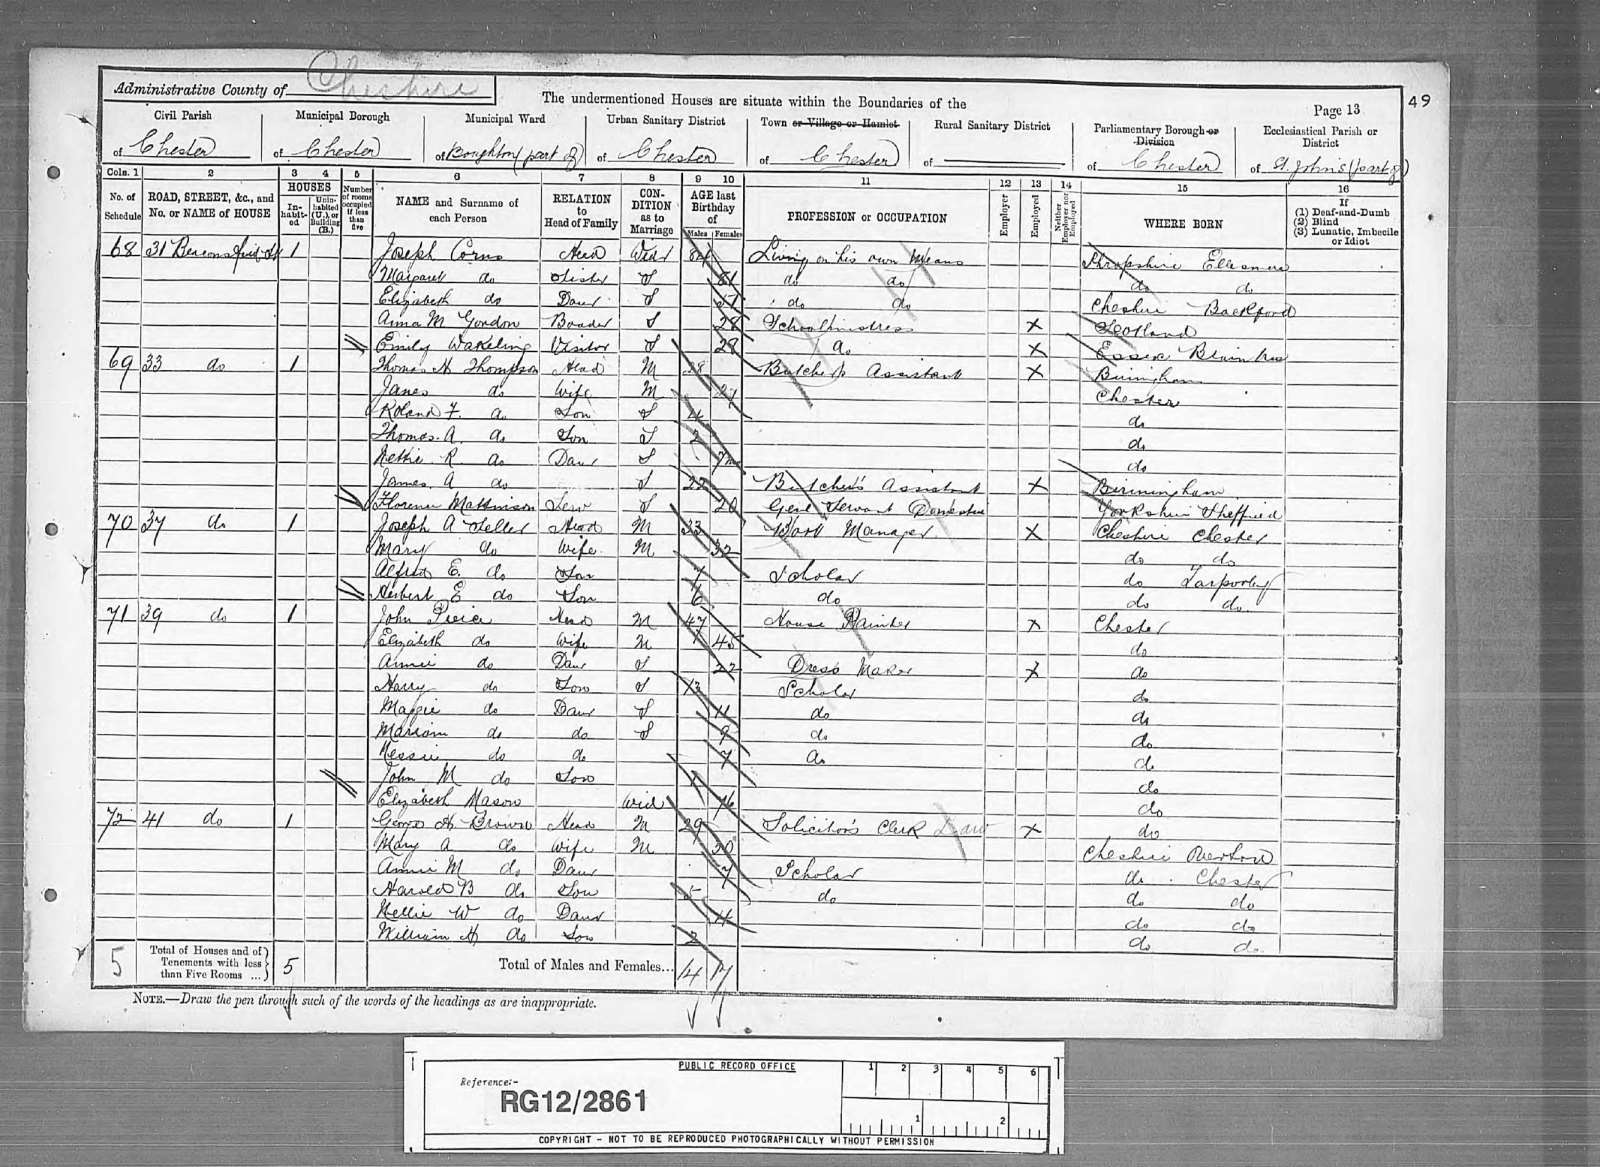 Administrative County of Cheshire
The undermentioned Houses are situate within the Boundaries of the
Page 13
49
Civil Parish of Chester
Municipal Borough of Chester
Municipal Ward of Boughton (part of)
Urban Sanitary District of Chester
Town or Village or Hamlet of Chester
Rural Sanitary District of
Parliamentary Borough or Division of Chester
Ecclesiastical Parish or District of St. John's (part of)
Cols. 1 2 3 4 5 6 7 8 9 10 11 12 13 14 15 16
No. of Schedule
ROAD, STREET, &c., and No. or NAME of HOUSE
HOUSES
Inhabited
Uninhabited (U.), or Building (B.)
Number of rooms occupied if less than five
NAME and Surname of each Person
RELATION to Head of Family
CONDITION as to Marriage
AGE last Birthday of
Males Females
PROFESSION or OCCUPATION
Employer
Employed
Neither Employer nor Employed
WHERE BORN
If (1) Deaf-and-Dumb (2) Blind (3) Lunatic, Imbecile or Idiot
68 31 Beaconsfield St 1 Joseph Corns Head Widr Living on his own Means Shropshire Ellesmere
Margaret do Sister S 81 do do do do
Elizabeth do Daur S do do Cheshire Backford
Anna M Gordon Boader S 28 Schoolmistress X Scotland
Emily Wakeling Visitor S 28 do X Essex Braintree
69 33 do 1 Thomas H Thompson Head M 28 Butcher's Assistant X Birmingham
Janes do Wife M 27 Chester
Roland F. do Son S 4 do
Thomas. A. do Son S 2 do
Nettie R. do Daur S 7m do
James. A do S 22 Butcher's Assistant X Birmingham
Florence Mattinson Serv S 20 Genl Servant Domestic Yorkshire Sheffield
70 37 do 1 Joseph A Seller Head M 33 Manager X Cheshire Chester
Mary do Wife M 32 do do
Alfred E. do Son Scholar do Tarporley
Herbert E do Son 6 do do do
71 39 do 1 John Peirce Head M 47 House Painter X Chester
Elizabeth do Wife M 45 do
Annie do Daur S 22 Dress Maker X do
Harry do Son S 13 Scholar do
Maggie do Daur S 11 do do
Mariom do do S 9 do do
Nessie do do 7 do do
John M do Son 1 do
Elizabeth Mason Wid 76 do
72 41 do 1 George H Brown Head M 29 Solicitor's Clerk Law X do
Mary A do Wife M 30 Cheshire Overton
Annie M do Daur 7 Scholar do Chester
Harold B do Son 5 do do do
Nellie W do Daur 4 do do
William H do Son 2 do do
5 Total of Houses and of Tenements with less than Five Rooms ... 5 Total of Males and Females... 14 17
NOTE.—Draw the pen through such of the words of the headings as are inappropriate.
PUBLIC RECORD OFFICE
1 2 3 4 5 6
Reference:-
RG12/2861
1 2
COPYRIGHT - NOT TO BE REPRODUCED PHOTOGRAPHICALLY WITHOUT PERMISSION